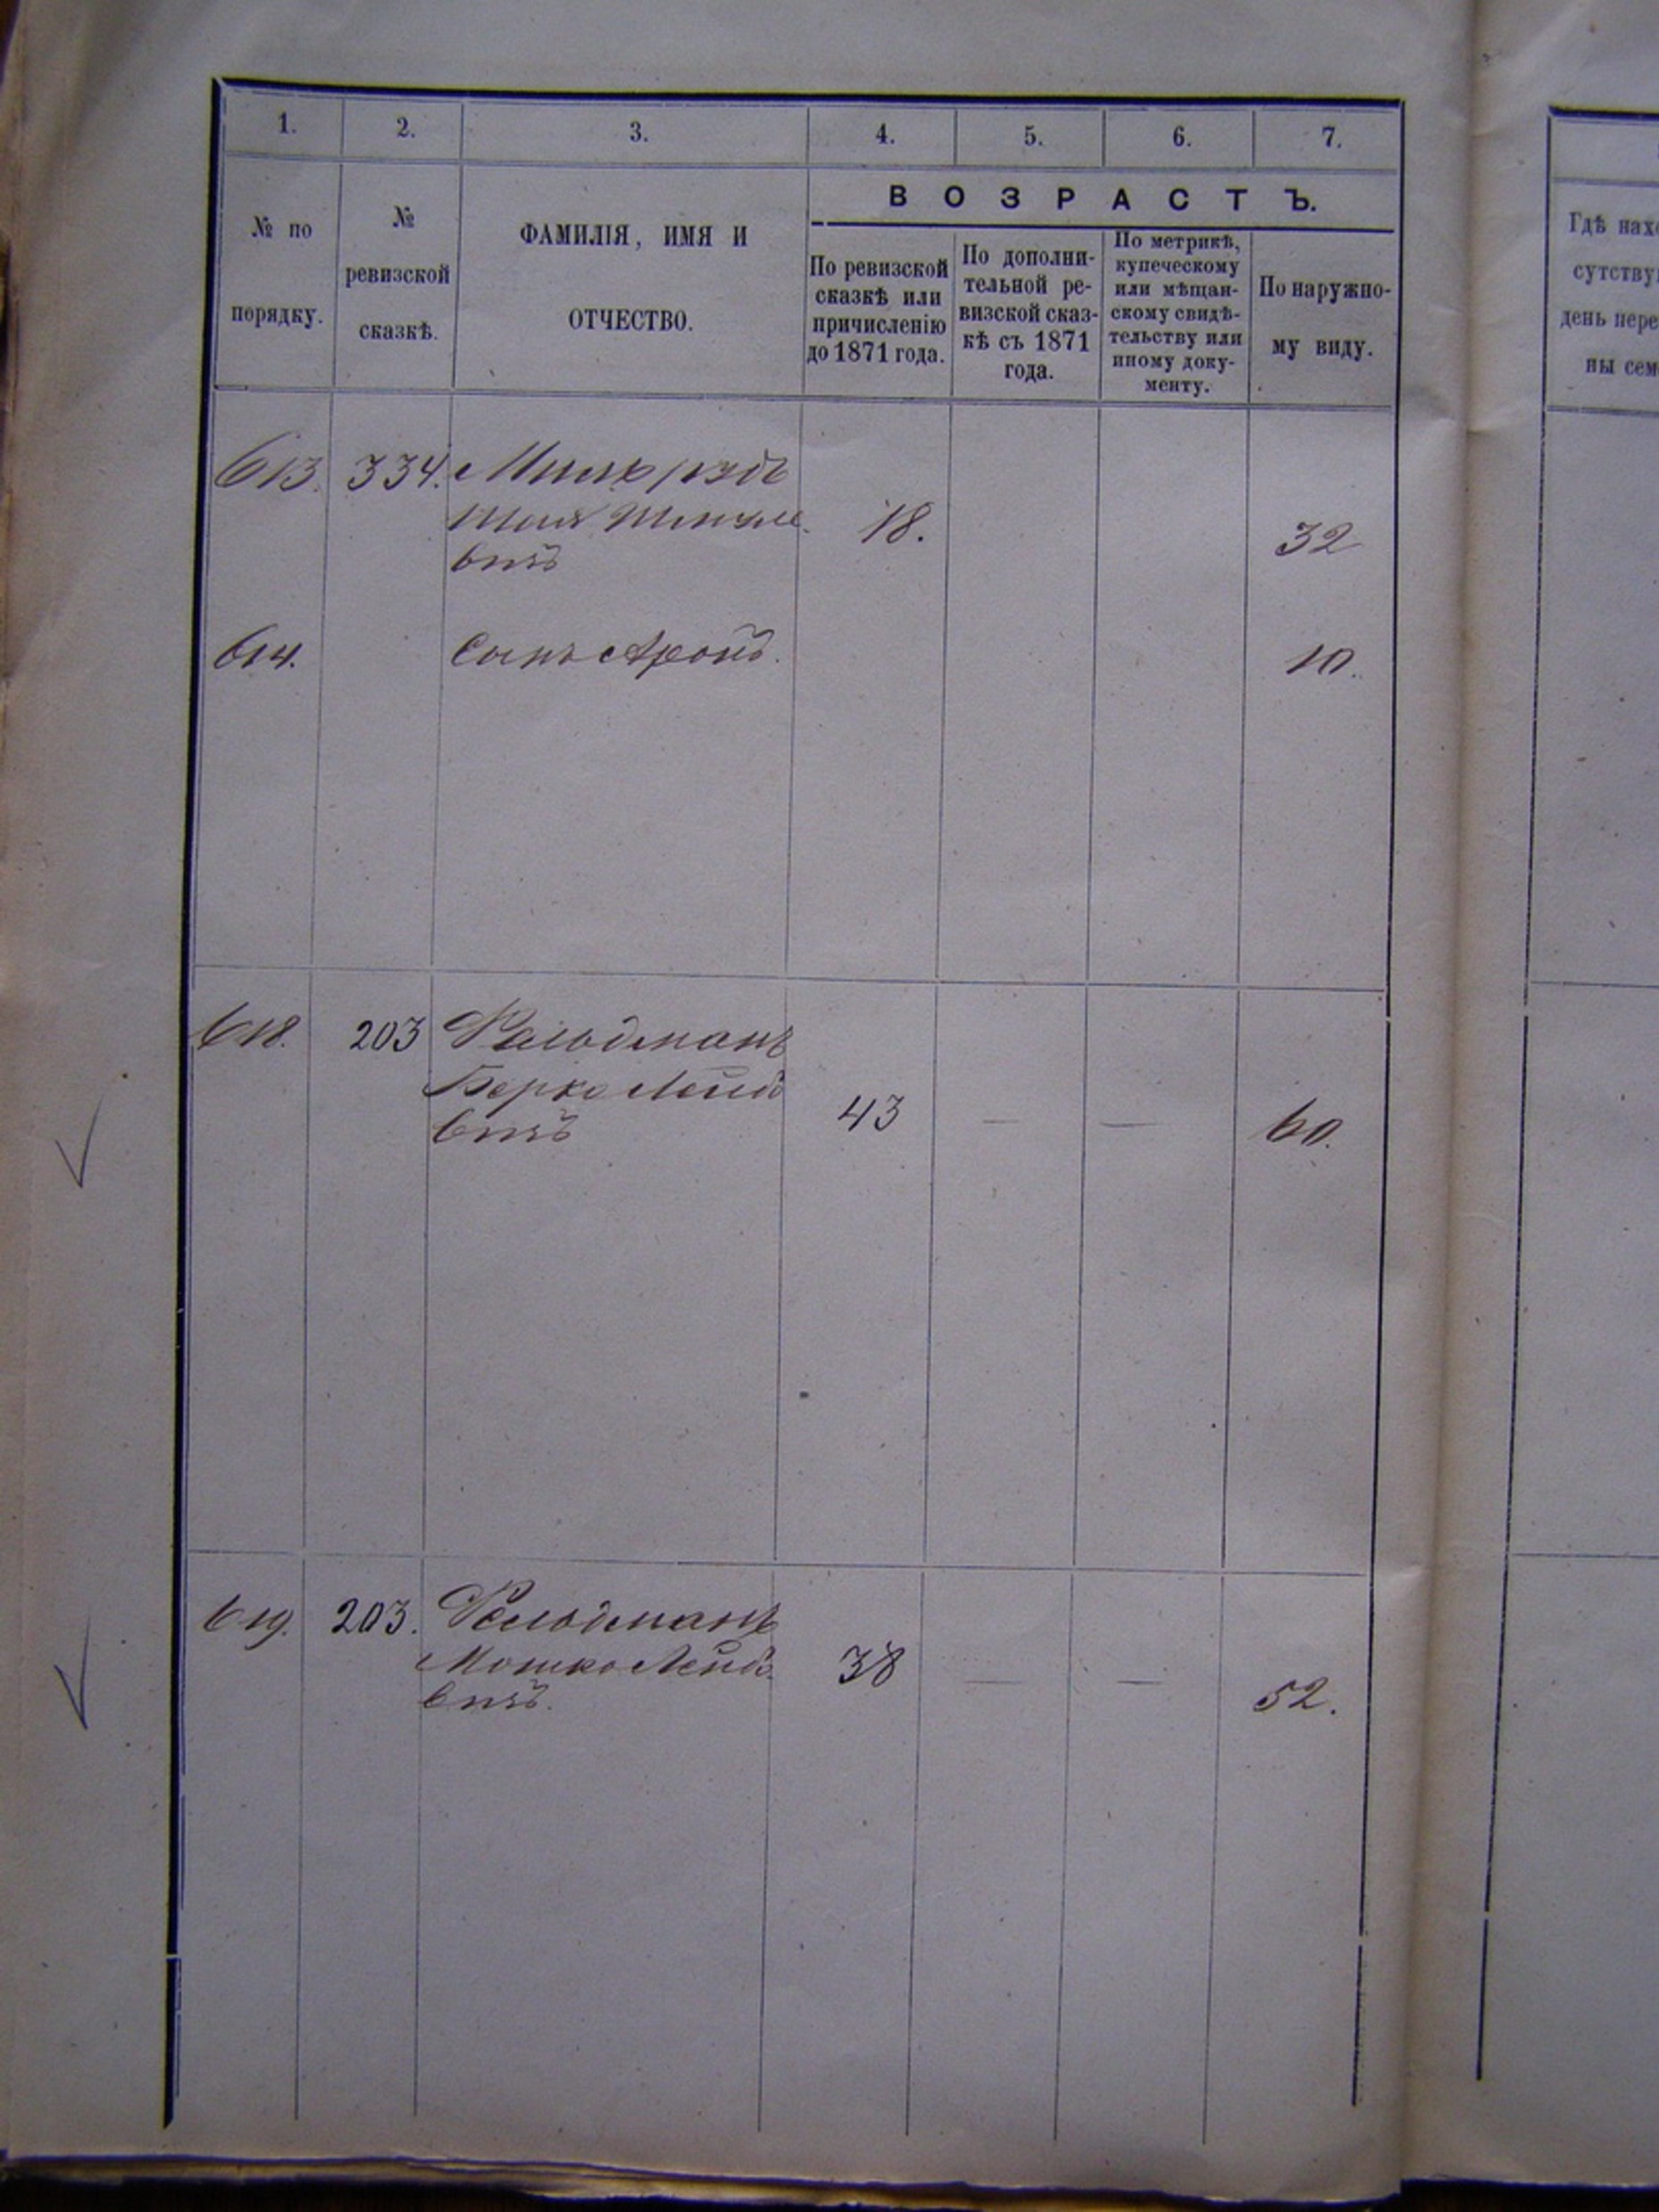 1. 2. 3. 4. 5. 6. 7.
№ по порядку.
№ ревизской сказкѣ.
ФАМИЛІЯ, ИМЯ И
ОТЧЕСТВО.
ВОЗРАСТЪ.
По ревизской
сказкѣ или
причисленію
до 1871 года.
По дополни-
тельной ре-
визской сказ-
кѣ съ 1871
года.
По метрикѣ,
купеческому
или мѣщан-
скому свидѣ-
тельству или
иному доку-
менту.
По наружно-
му виду.
Гдѣ нахо
сутству
день пере
ны сем
613. 334.
18. 32
вичъ
614. Сынъ Аронъ. 10.
618. 203 Фельдманъ
Берко Лейбо
вичъ 43 — — 60.
619. 203. Фельдманъ
Мошко Лейбо
вичъ. 38 — — 52.